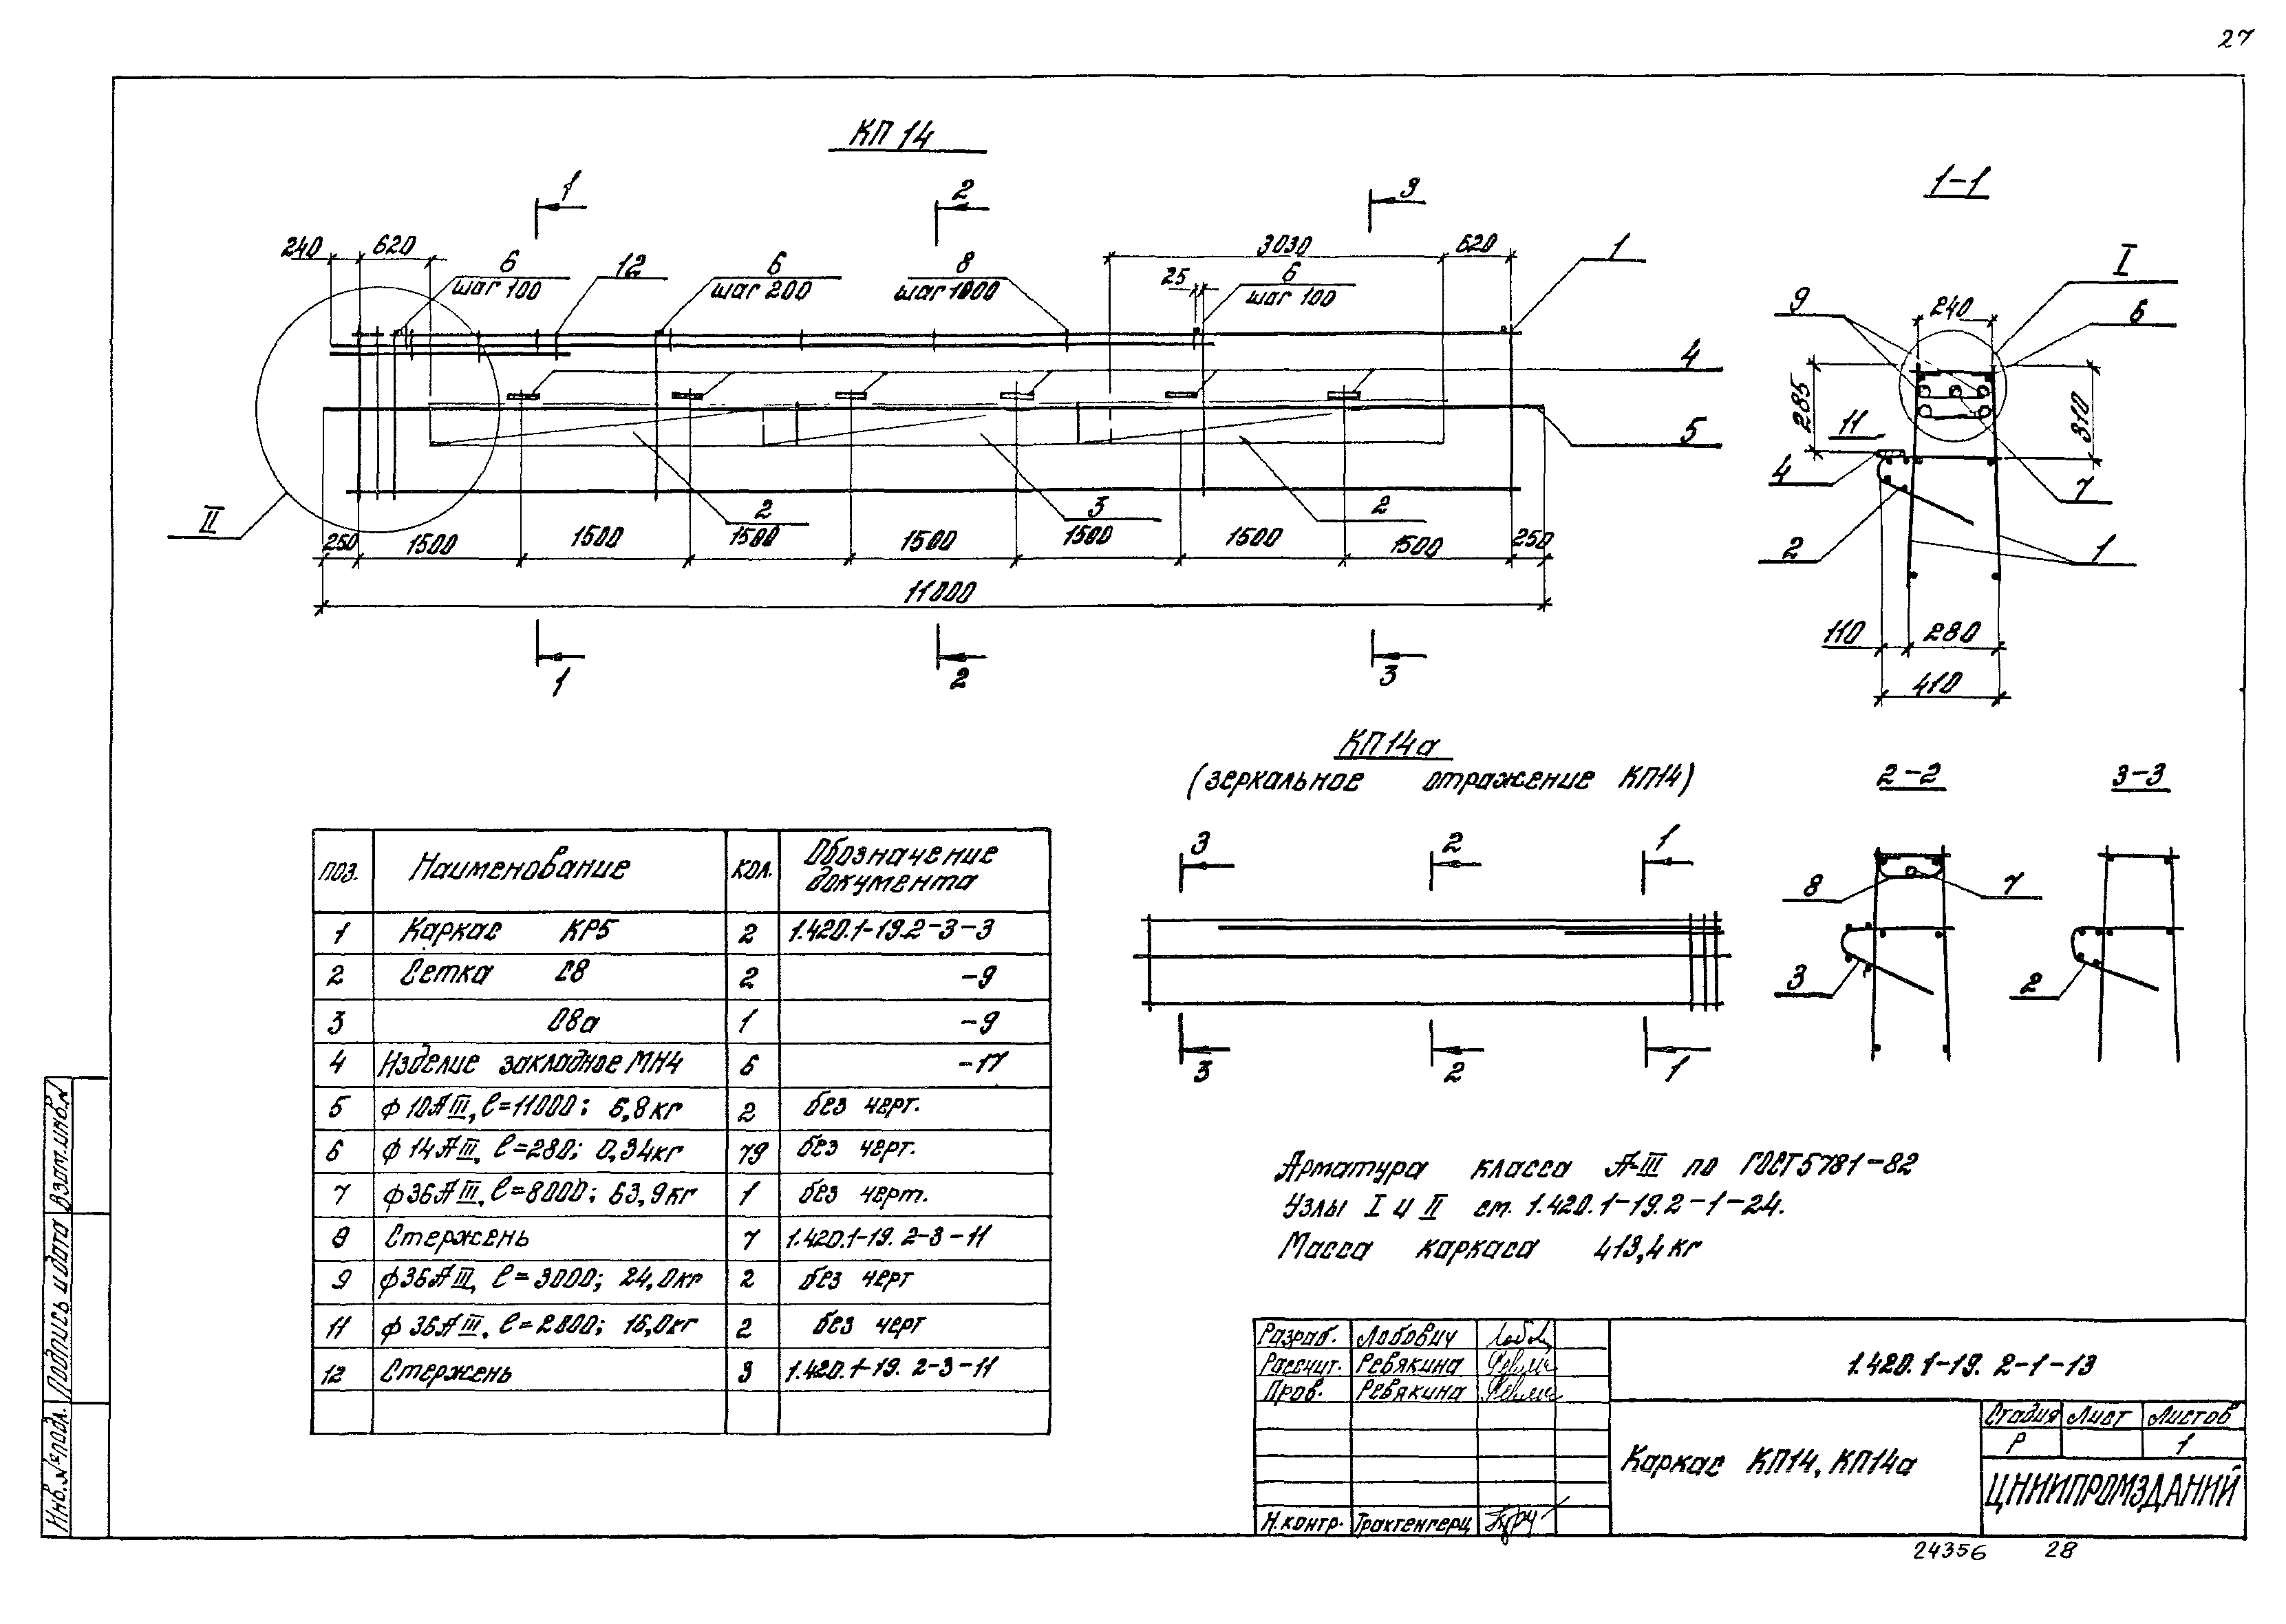 27
КП 14
1 2 3
240 620 3030 620
6 шаг 100
12
6 шаг 200
8 шаг 1000
25
6 шаг 100
1
4
5
II
2 3 2
250 1500 1500 1500 1500 1500 1500 1500 250
11000
1 2 3
1-1
I
9 240 6
285 310
11
4 7
2 1
110 280
410
КП14а
(зеркальное отражение КП14)
3 2 1
3 2 1
2-2
8 7
3
3-3
2
поз. Наименование кол. Обозначение документа
1 Каркас КР5 2 1.420.1-19.2-3-3
2 Сетка С8 2 -9
3 С8а 1 -9
4 Изделие закладное МН4 6 -17
5 ф10АIII, l=11000; 6,8кг 2 без черт.
6 ф14АIII, l=280; 0,34кг 79 без черт.
7 ф36АIII, l=8000; 63,9кг 1 без черт.
8 Стержень 7 1.420.1-19. 2-3-11
9 ф36АIII, l=3000; 24,0кг 2 без черт
11 ф36АIII, l=2000; 16,0кг 2 без черт
12 Стержень 3 1.420.1-19. 2-3-11
Арматура класса А-III по ГОСТ5781-82
Узлы I и II см. 1.420.1-19.2-1-24.
Масса каркаса 413,4кг
Разраб. Лобович
Рассчит. Ревякина
Пров. Ревякина
Н.контр. Трахтенгерц
1.420.1-19. 2-1-13
Каркас КП14, КП14а
Стадия Лист Листов
Р 1
ЦНИИПРОМЗДАНИЙ
24356 28
Инв.№подл. Подпись и дата Взам.инв.№